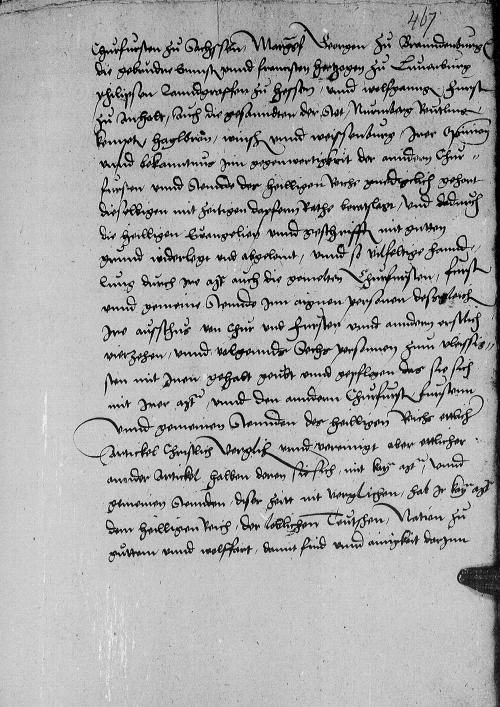 467
Churfursten zu Sachssen, Marggf Georgen zu Branndenburg
die gebruder Ernnst vnnd Francisten hertzogen zu Luneburg
philipsen Lanndgraffen zu hessen, vnnd wolfganng Furst
zu Anhalt, Auch die gesanndten der Stet, Nurmberg Reutling
kempten haylbron, winsh vnnd weissenburg Irer Opinion
vnnd bekantnus Inn gegenwertigkeit der anndern Chur-
fursten vnnd Stennde des heilligen Reichs gnedigclich gehort
dieselbigen mit zeitigem dapferm Rathe beratslagt, vnd dadurch
die heilligen Euangelien vnnd geschrifft mit gutem
grund widerlegt vnd abgelaint, vnnd so vilfeltige hannd-
lung durch Ire mt auch die gemelten Churfursten, Furst
vnnd gemeine Stennde Inn aignen personen desgleich
Ire ausschus von Chur vnd Fursten vnnd anndern erstlich
vierzehen, vnnd volgennds Sechs personen zum vleissig-
sten mit Inen gehabt geubt vnnd gepflogen das sie sich
mit Irer mt, vnnd den anndern Churfursten Fursten
vnnd gemeinen Stennden des heilligen Reichs etlich
Artickel Christlich verglich vnnd vereinigt aber etlicher
annder Artickel halben deren sie sich, mit kay mt, vnnd
gemeinen Stennden, diser zeit nit verglichen, hab Ir kay mt
dem heilligen Reich, der loblichen Teutschen, Nation zu
guttem vnnd wolffart, damit frid vnnd ainigkeit darInn